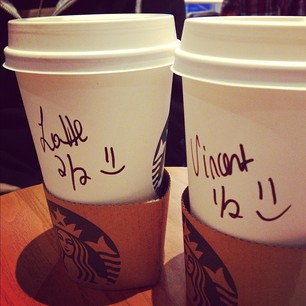 Latte
2/2 =)
Vincent
1/2 =)